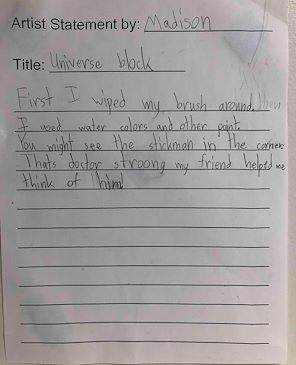 Artist Statement by: Madison
Title: Universe block
First I wiped my brush around. Then
I used water colors and other paint.
You might see the stickman in the corner.
Thats doctor stroong my friend helped me
think of him!